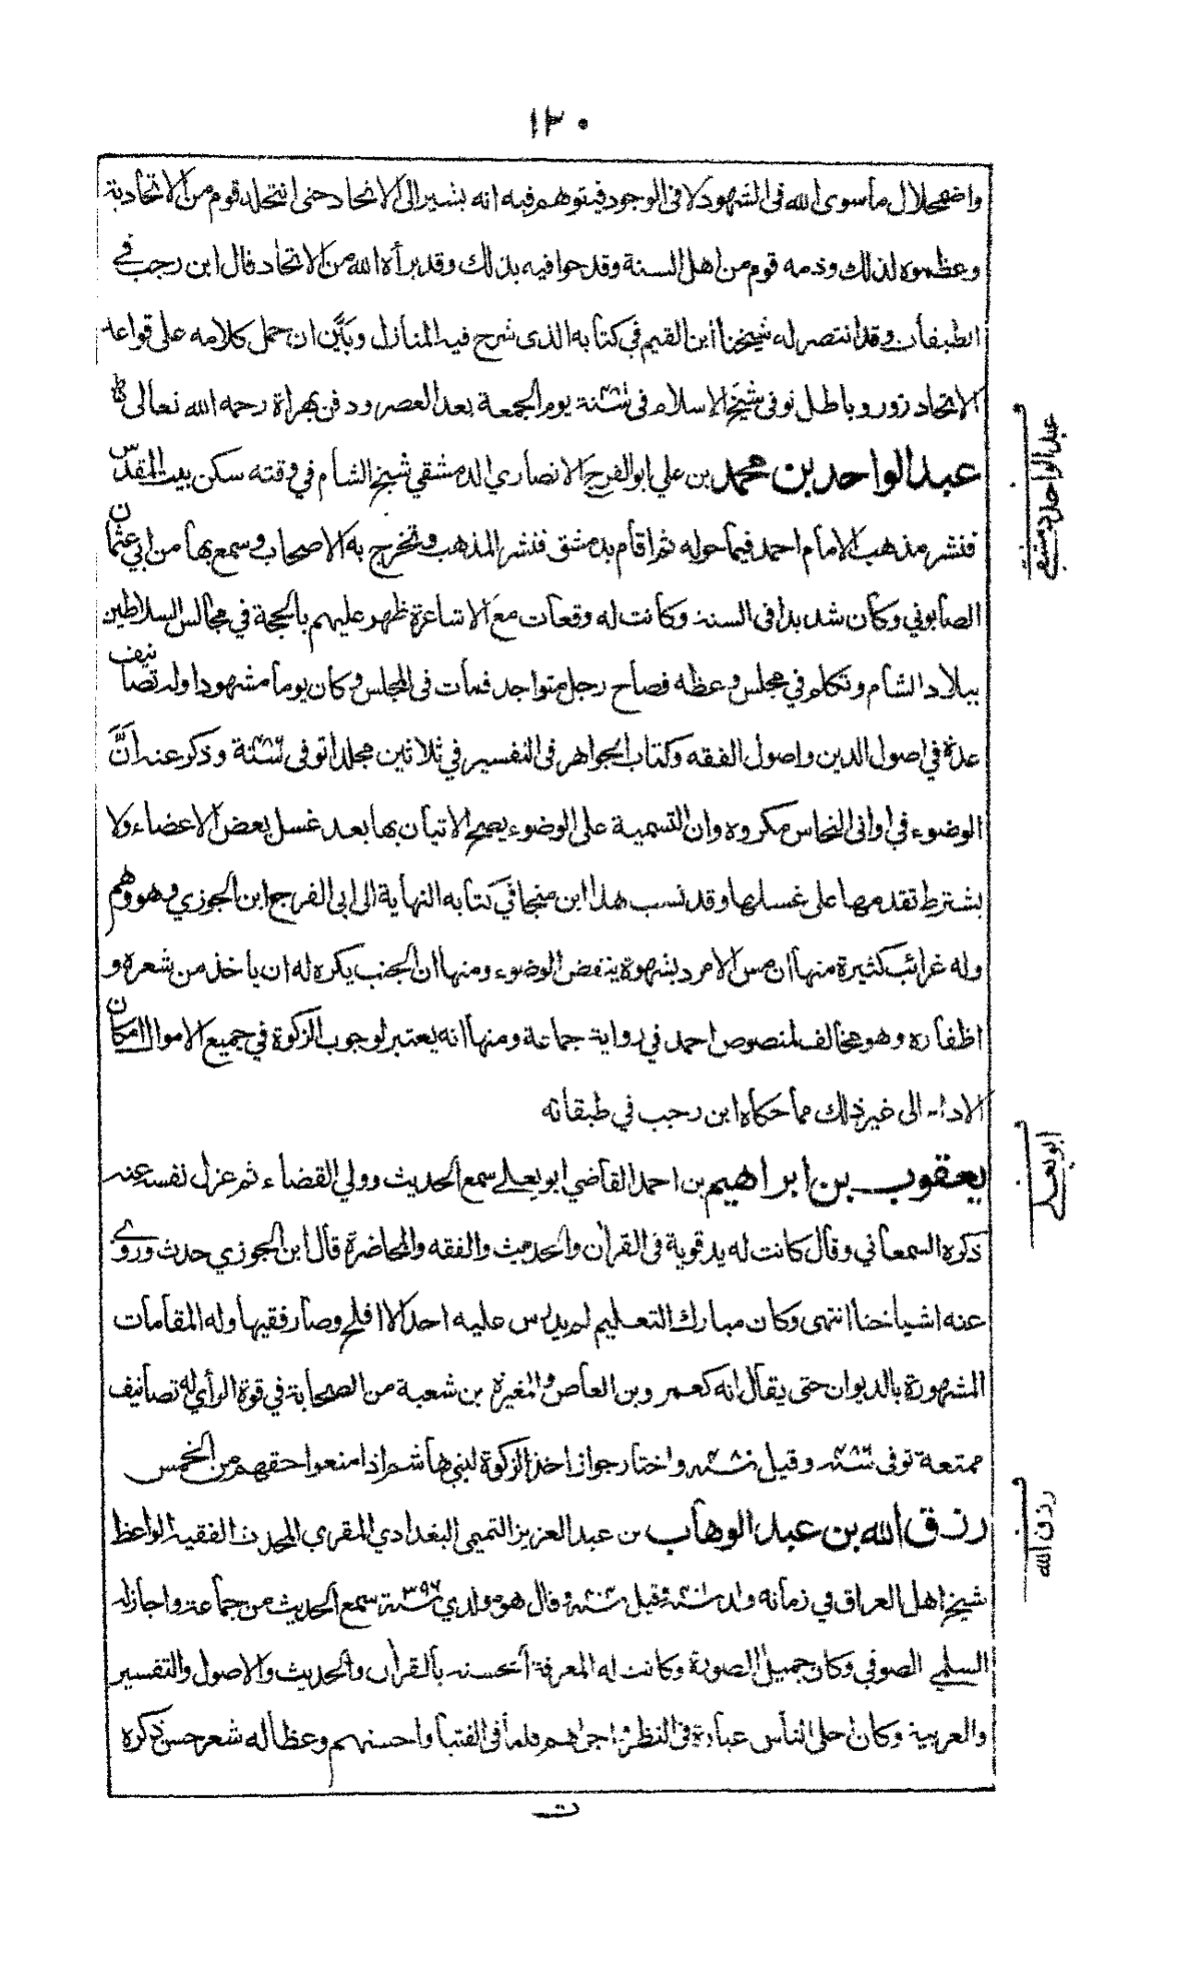 ١٢٠
واضمحلال ما سوى الله فى الشهود لا فى الوجود فيتوهم فيه انه يشير الى الاتحاد حتى انتحله قوم من الاتحادية
وعظموه لذلك وذمه قوم من اهل السنة وقدحوا فيه بذلك وقد برأه الله من الاتحاد قال ابن رجب في
الطبقات وقد انتصر له شيخنا ابن القيم في كتابه الذى شرح فيه المنازل وبَيَّن ان حمل كلامه على قواعد
الاتحاد زور وباطل توفى شيخ الاسلام فى سنة يوم الجمعة بعد العصر ودفن بهراة رحمه الله تعالى
عبد الواحد بن محمد بن علي ابو الفرج الانصاري الدمشقي شيخ الشام في وقته سكن بيت المقدس
فنشر مذهب الامام احمد فيما حوله ثم اقام بدمشق فنشر المذهب وتخرج به الاصحاب وسمع بها من ابي عثمان
الصابوني وكان شديدا فى السنة وكانت له وقعات مع الاشاعرة ظهر عليهم بالحجة في مجالس السلاطين
ببلاد الشام وتكلم في مجلس وعظه فصاح رجل متواجد فمات فى المجلس وكان يوما مشهودا وله تصانيف
عدة في اصول الدين واصول الفقه وكتاب الجواهر فى التفسير في ثلاثين مجلدا توفى سنة وذكر عنه اَنَّ
الوضوء في اوانى النحاس مكروه وان التسمية على الوضوء يصح الاتيان بها بعد غسل بعض الاعضاء ولا
يشترط تقدمها على غسلها وقد نسب هذا ابن منجا في كتابه النهاية الى ابى الفرج ابن الجوزي وهو وهم
وله غرائب كثيرة منها ان مس الامرد بشهوة ينقض الوضوء ومنها ان الجنب يكره له ان ياخذ من شعره و
اظفاره وهو مخالف لمنصوص احمد في رواية جماعة ومنها انه يعتبر لوجوب الزكوة في جميع الاموال امكان
الاداء الى غير ذلك مما حكاه ابن رجب في طبقاته
يعقوب بن ابراهيم بن احمد القاضي ابو يعلى سمع الحديث وولي القضاء ثم عزل نفسه عنه
ذكره السمعاني وقال كانت له يد قوية فى القرآن والحديث والفقه والمحاضرة قال ابن الجوزي حدث وروى
عنه اشياخنا انتهى وكان مبارك التعليم لم يدرس عليه احد الا افلح وصار فقيها وله المقامات
المشهورة بالديوان حتى يقال انه كعمرو بن العاص والمغيرة بن شعبة من الصحابة في قوة الرأي له تصانيف
ممتعة توفى سنة وقيل سنة واختار جواز اخذ الزكوة لبني هاشم اذا منعوا حقهم من الخمس
رزق الله بن عبد الوهاب بن عبد العزيز التميمى البغدادي المقري المحدث الفقيه الواعظ
شيخ اهل العراق في زمانه ولد سنة وقيل سنة وقال هو مولدي سنة ٣٩٦ سمع الحديث من جماعة واجاز له
السلمي الصوفي وكان جميل الصورة وكانت له المعرفة الحسنة بالقرآن والحديث والاصول والتفسير
والعربية وكان احلى الناس عبارة فى النظر واجراهم قلما فى الفتيا واحسنهم وعظا له شعر حسن ذكره
عبد الواحد دمشقي
ابو يعلى
رزق الله